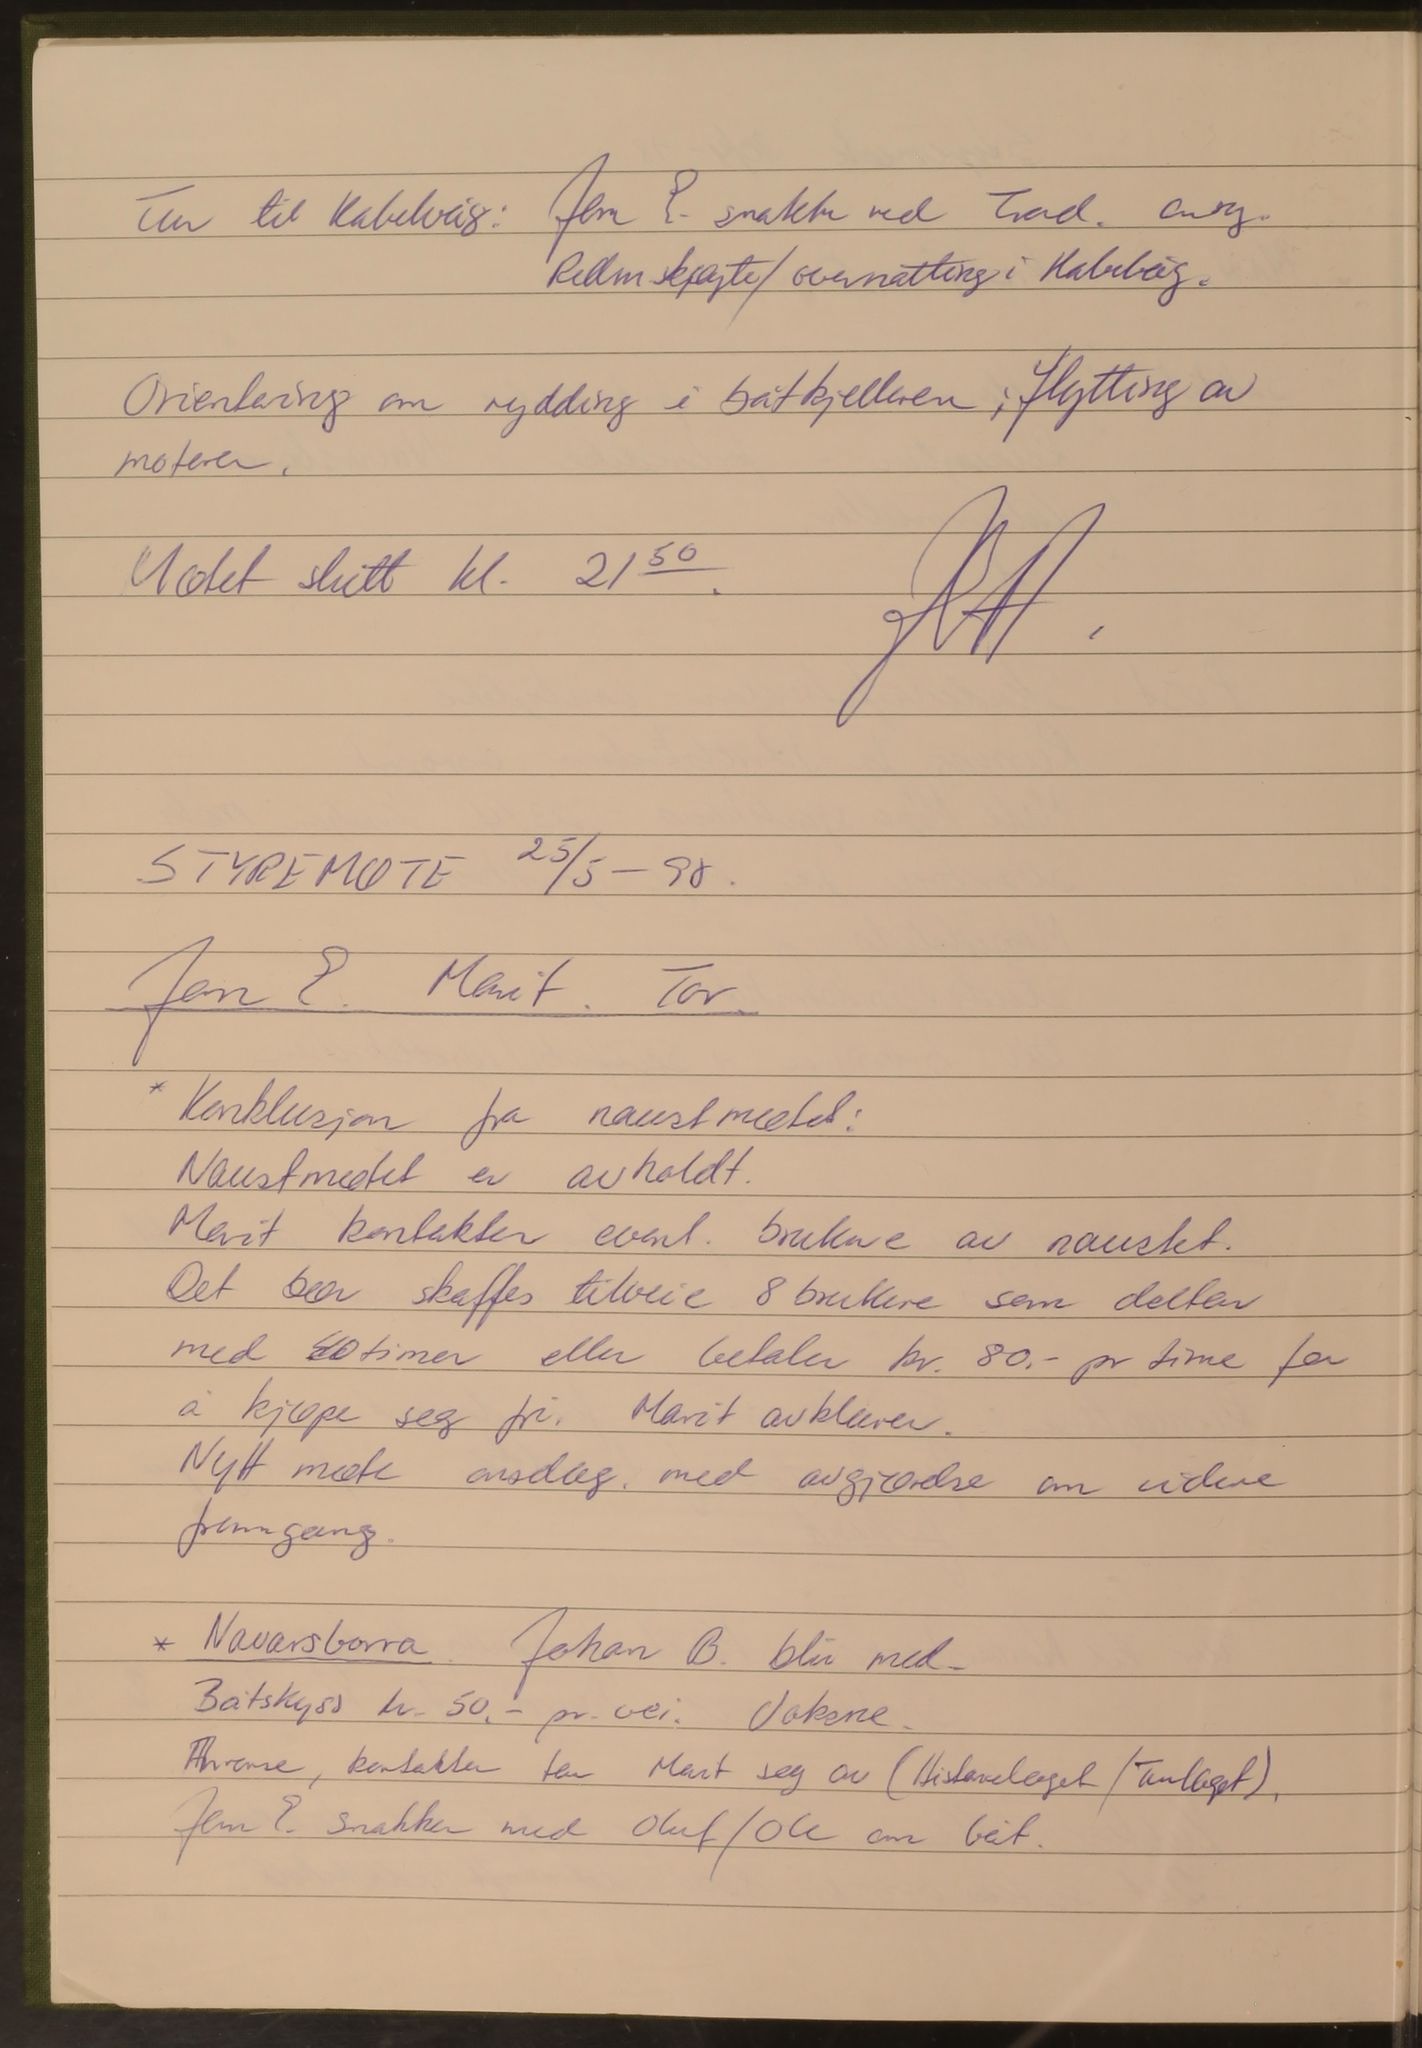 Tur til Kabelvåg: Jern E. snakker med Trond. ang.
Redn.skøyte/overnatting i Kabelvåg.
Orientering om rydding i båtkjelleren ; flytting av
motoren.
Møtet slutt kl. 21 50.
STYREMØTE 25/5-98.
Jern E. Marit. Tor.
* Konklusjon fra naustmøtet:
Naustmøtet er avholdt.
Marit kontakter event. brukere av naustet.
Det bør skaffes tilveie 8 brukere som deltar
med 40 timer eller betaler kr. 80.- pr time for
å kjøpe seg fri. Marit avklarer.
Nytt møte onsdag. med avgjørelse om videre
framgang.
* Navarsborra Johan B. blir med.
Båtskyss kr. 50.- pr. vei. Voksne.
kontakter tar Marit seg av (Historielaget/Turlaget).
Jern E. snakker med Oluf/Ole om båt.